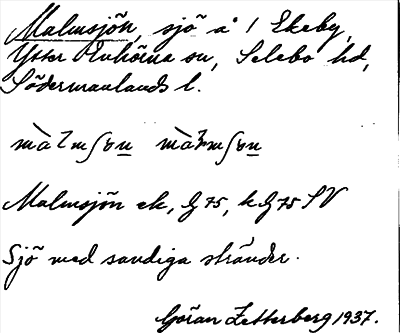 Malmsjön, sjö å 1 Ekeby,
Ytter Enhörna sn, Selebo hd,
Södermanlands l.
Malmsjön ek, G 75, k G 75 SV
Sjö med sandiga stränder.
Göran Zetterberg 1937.